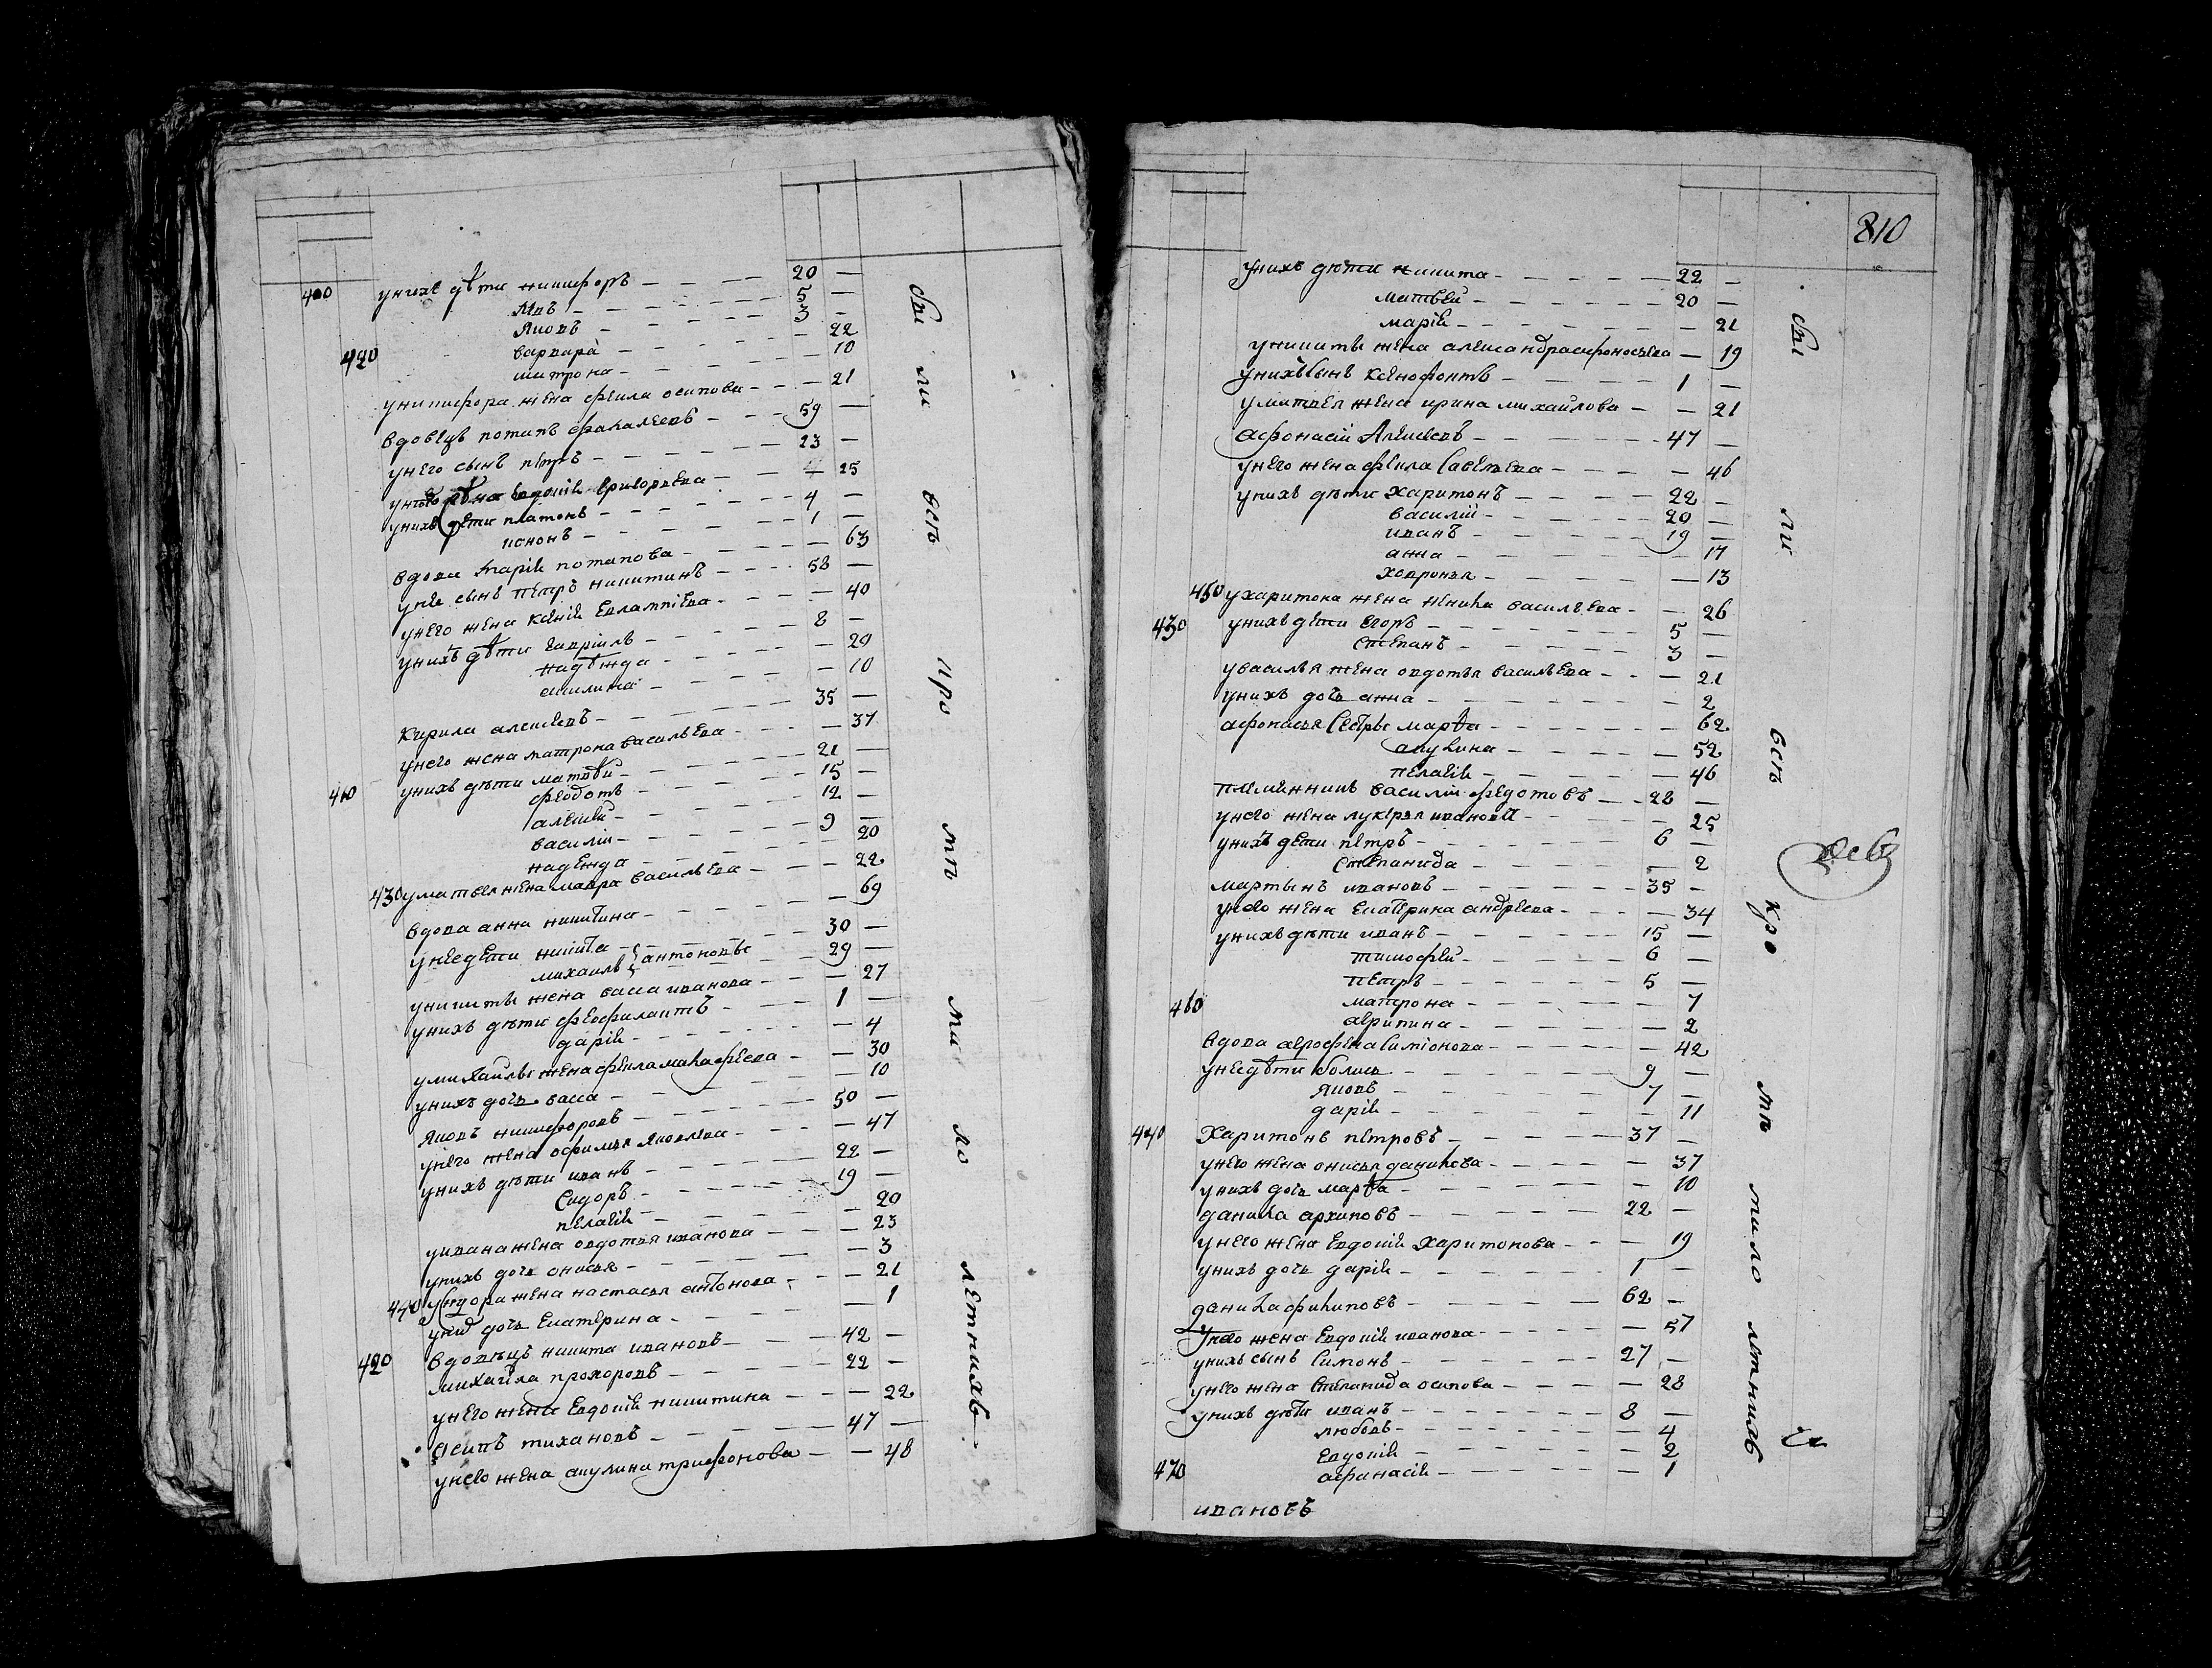 400 у нихъ дѣти никифоръ — 20 —
Яковъ — 5 —
Яковъ — 3 —
420 варвара — 22
митрона — 10
у никифора жена фекла осипова — 21
вдовецъ потапъ фалалеевъ — 59 —
у него сынъ петръ — 23 —
у него жена евдокия григорьева — 25
у нихъ дети платонъ — 4 —
кононъ — 1 —
вдова мария потапова — 63
у нее сынъ петръ никитинъ — 58 —
у него жена ксения евлампиева — 40
у нихъ дѣти гавриилъ — 8 —
надѣжда — 20
акилина — 10
кирила алексеевъ — 35 —
у него жена матрона васильева — 37
у нихъ дѣти матвѣй — 21 —
410 федотъ — 15 —
алексей — 12 —
василий — 9 —
надежда — 20
430 у матвея жена мавра васильева — 22
вдова анна никитина — 69
у нее дети никита — 30 —
михаилъ } антоновы 29 —
у никиты жена васса иванова — 27
у нихъ дѣти феофилактъ — 1 —
дария — 4
у михаилы жена фекла малафеева — 30
у нихъ дочь васса — 10
Яковъ никифоровъ — 50 —
у него жена офимья Яковлева — 47
у нихъ дѣти иванъ — 22 —
Сидоръ — 19 —
пелагия — 20
у ивана жена овдотья иванова — 23
у нихъ дочь онисья — 3
440 у Сидора жена настасья антонова — 21
у нихъ дочь екатерина — 1
420 вдовецъ никита ивановъ — 42 —
михайла прохоровъ — 22 —
у него жена евдокия никитина — 22
осипъ тихановъ — 47 —
у него жена акулина трифонова — 48
бы ли всѣ про тп ми ло летнихъ
810
у нихъ дѣти никита — 22 —
матвей — 20 —
мария — 21
у никиты жена александра афоносьева — 19
у нихъ сынъ ксенофонтъ — 1 —
у матвея жена ирина михайлова — 21
афонасий Алексеевъ — 47 —
у него жена фекла савельева — 46
у нихъ дѣти харитонъ — 22 —
василий — 20 —
иванъ — 19 —
анна — 17
ховронья — 13
450 у харитона жена ненила васильева — 26
430 у нихъ дети егоръ — 5 —
степанъ — 3 —
у василья жена овдотья васильева — 21
у нихъ дочь анна — 2
афонасья сестры марѳа — 62
акулина — 52
пелагия — 46
племянникъ василий федотовъ — 28 —
у него жена лукерья иванова — 25
у нихъ дети петръ — 6 —
степанида — 2
мартынъ ивановъ — 35 —
у него жена екатерина андреева — 34
у нихъ дѣти иванъ — 15 —
тимофей — 6 —
петръ — 5 —
460 матрона — 7
агрипина — 2
вдова агрофена симионова — 42
у нее дѣти — 9 —
Яковъ — 7 —
дария — 11
440 Харитонъ петровъ — 37 —
у него жена онисья данилова — 37
у нихъ дочь марѳа — 10
данила архиповъ — 22 —
у него жена евдокия харитонова — 19
у нихъ дочь дария — 1 —
данила филиповъ — 62 —
у него жена евдокия иванова — 57
у нихъ сынъ симонъ — 27 —
у него жена степанида осипова — 28
у нихъ дѣти иванъ — 8 —
любовь — 4
евдокия — 2
470 афанасия — 1
ивановъ
бы ли всѣ кро мѣ мило летнихъ